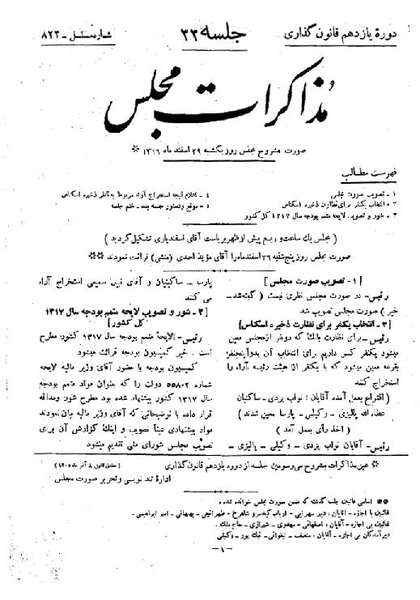 دورهٔ یازدهم قانون گذاری
جلسه ۳۳
شماره مسلسل - ۸۲۳
مذاکرات مجلس
صورت مشروح مجلس روز یکشنبه ۲۹ اسفند ماه ۱۳۱۶ *
فهرست مطالب
۱ - تصویب صورت مجلس
۲ - انتخاب یکنفر برای نظارت ذخیره اسکناس
۳ - شور و تصویب لایحه متمم بودجه سال ۱۳۱۷ کل کشور
۴ - اعلام نتیجه استخراج آراء مربوط به ناظر ذخیره اسکناس
۵ - موقع و دستور جلسه بعد - ختم جلسه
( مجلس یک ساعت و ربع پیش از ظهر بریاست آقای اسفندیاری تشکیل گردید )
صورت مجلس روز پنجشنبه ۲۶ اسفند ماه را آقای مؤید احمدی (منشی) قرائت نمودند **
[ ۱ - تصویب صورت مجلس ]
رئیس - در صورت مجلس نظری نیست ( گفته شد -
خیر ) صورت مجلس تصویب شد
[ ۲ - انتخاب یکنفر برای نظارت ذخیره اسکناس ]
رئیس - برای نظارت بانک که دو نفر از مجلس معین
میشود یکنفر کسر داریم برای انتخاب آن بدواً پنجنفر
بقرعه معین میشود که بیایند آراء را از هیئت رئیسه
استخراج کنند
( اقتراع بعمل آمده آقایان : نواب یزدی - ساکنیان
عطاءالله پالیزی - وکیلی - پارسا معین شدند )
( اخذ رأی بعمل آمد )
رئیس - آقایان نواب یزدی - وکیلی - پالیزی -
پارسا - ساکنیان و آقای استخراج آراء
می کنند
[ ۳ - شور و تصویب لایحه متمم بودجه سال ۱۳۱۷
کل کشور ]
رئیس - لایحه متمم بودجه ۱۳۱۷ کشور مطرح
است . خبر کمیسیون بودجه قرائت میشود
کمیسیون بودجه با حضور آقای وزیر مالیه لایحه
شماره ۵۵۸۰۲ دولت را که بعنوان مواد متمم بودجه
سال ۱۳۱۷ کشور پیشنهاد شده بود مطرح شور و مداقه
قرار داده با توضیحاتی که آقای وزیر مالیه بیان نمودند
مواد پیشنهادی عیناً تصویب و اینک گزارش آن برای
تصویب مجلس شورای ملی تقدیم میشود
* عین مذاکرات مشروح سی و سومین جلسه از دوره یازدهم قانون گذاری
اداره تند نویسی و تحریر صورت مجلس
** اسامی غائبین جلسه گذشته که ضمن صورت مجلس خوانده شده
غائبین با اجازه - آقایان ، دبیر سهرابی - ارباب کیخسرو شاهرخ - طهرانچی - بهبهانی - امیر ابراهیمی
غائبین بی اجازه - آقایان ، اصفهانی - مهدوی - شیرازی - حاج ملک
دیرآمدگان بی اجازه - آقایان ، منصف - نیک پور - وکیلی
- ۱ -